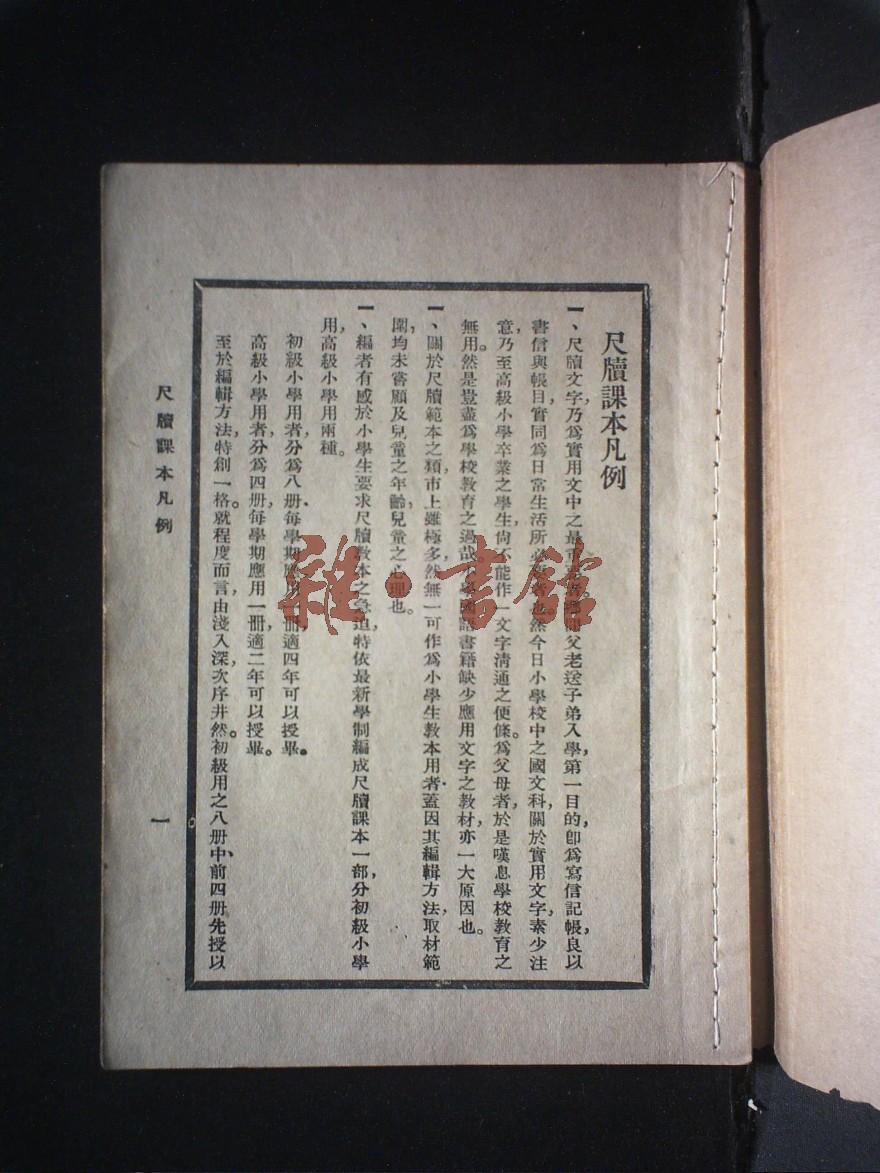 尺牘課本凡例
一、尺牘文字，乃爲實用文中之最重要者。鄉間父老送子弟入學，第一目的，卽爲寫信記帳，良以
書信與帳目，實同爲日常生活所必要者也。然今日小學校中之國文科，關於實用文字，素少注
意，乃至高級小學卒業之學生，尙不能作一文字淸通之便條。爲父母者，於是嘆息學校教育之
無用。然是豈盡爲學校教育之過哉。小學國語書籍缺少應用文字之教材，亦一大原因也。
一、關於尺牘範本之類，市上雖極多，然無一可作爲小學生教本用者，蓋因其編輯方法，取材範
圍，均未嘗顧及兒童之年齡，兒童之心理也。
一、編者有感於小學生要求尺牘教本之急迫，特依最新學制編成尺牘課本一部，分初級小學
用，高級小學用兩種。
初級小學用者，分爲八册、每學期應用一册，適四年可以授畢。
高級小學用者，分爲四册，每學期應用一册，適二年可以授畢。
至於編輯方法，特創一格。就程度而言，由淺入深，次序井然。初級用之八册中、前四册先授以
尺牘課本凡例
一
雜·書館